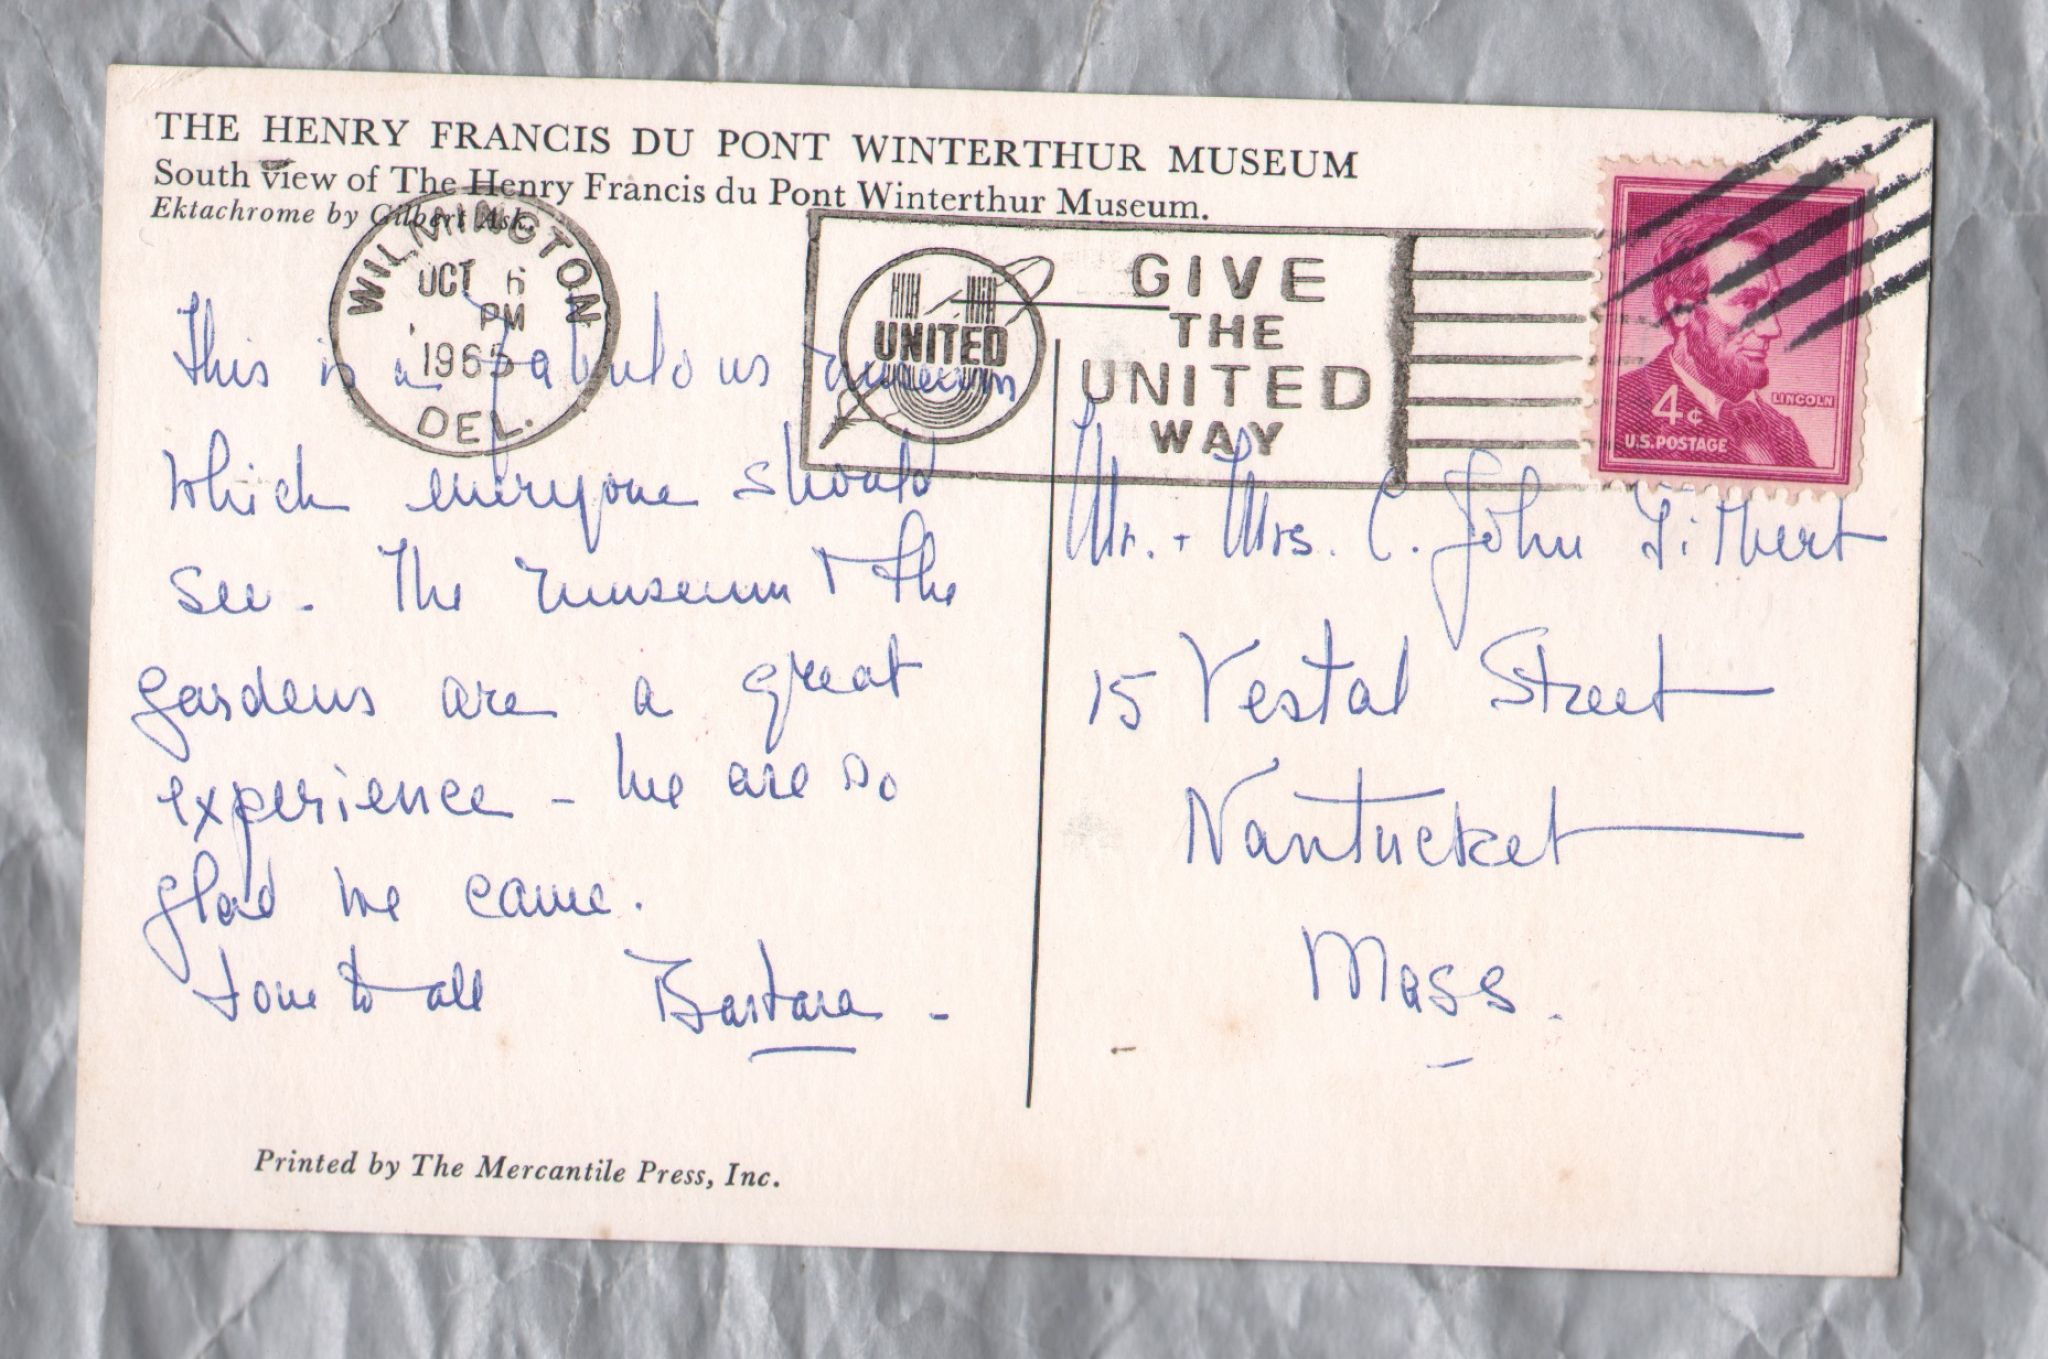 THE HENRY FRANCIS DU PONT WINTERTHUR MUSEUM
South view of The Henry Francis du Pont Winterthur Museum.
Ektachrome by Gilbert Ask.
WILMINGTON
OCT 6
PM
1965
DEL.
UNITED
GIVE
THE
UNITED
WAY
4¢
LINCOLN
U.S. POSTAGE
This is a fabulous museum
which everyone should
see - The museum + the
gardens are a great
experience - We are so
glad we came.
Love to all Barbara -
Mr. + Mrs. C. John
15 Vestal Street
Nantucket
Mass.
Printed by The Mercantile Press, Inc.